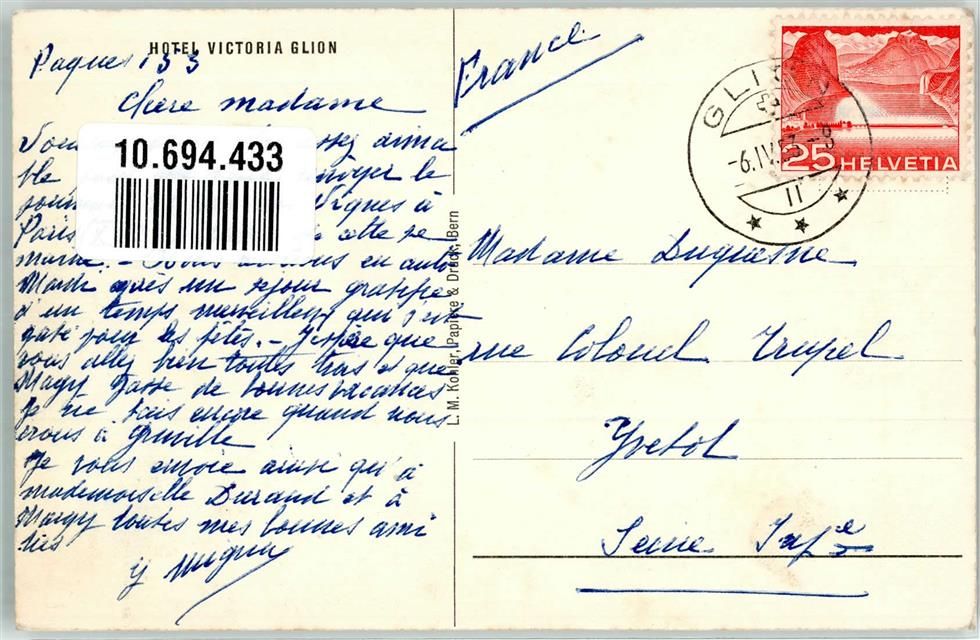 HOTEL VICTORIA GLION
Paques 153
Chère madame
aima
ble le
Vignes à
Paris cette se
maine. - en auto
Mardi après un sejour gratifié
d'un temps merveilleux qui s'est
gaté pour les fêtes. - J'espère que
vous allez bien toutes trois et que
Magy passe de bonnes vacances
Je ne sais encore quand nous
irons à
Je vous envoie ainsi qu'à
mademoiselle Durand et à
Magy toutes mes bonnes ami
tiés
10.694.433
L. M. Kohler, Papiere & Druck, Bern
France
GLION
-6.IV.53
II
25 HELVETIA
Madame Duquesne
rue Colonel Trupel
Yvetot
Seine Infre